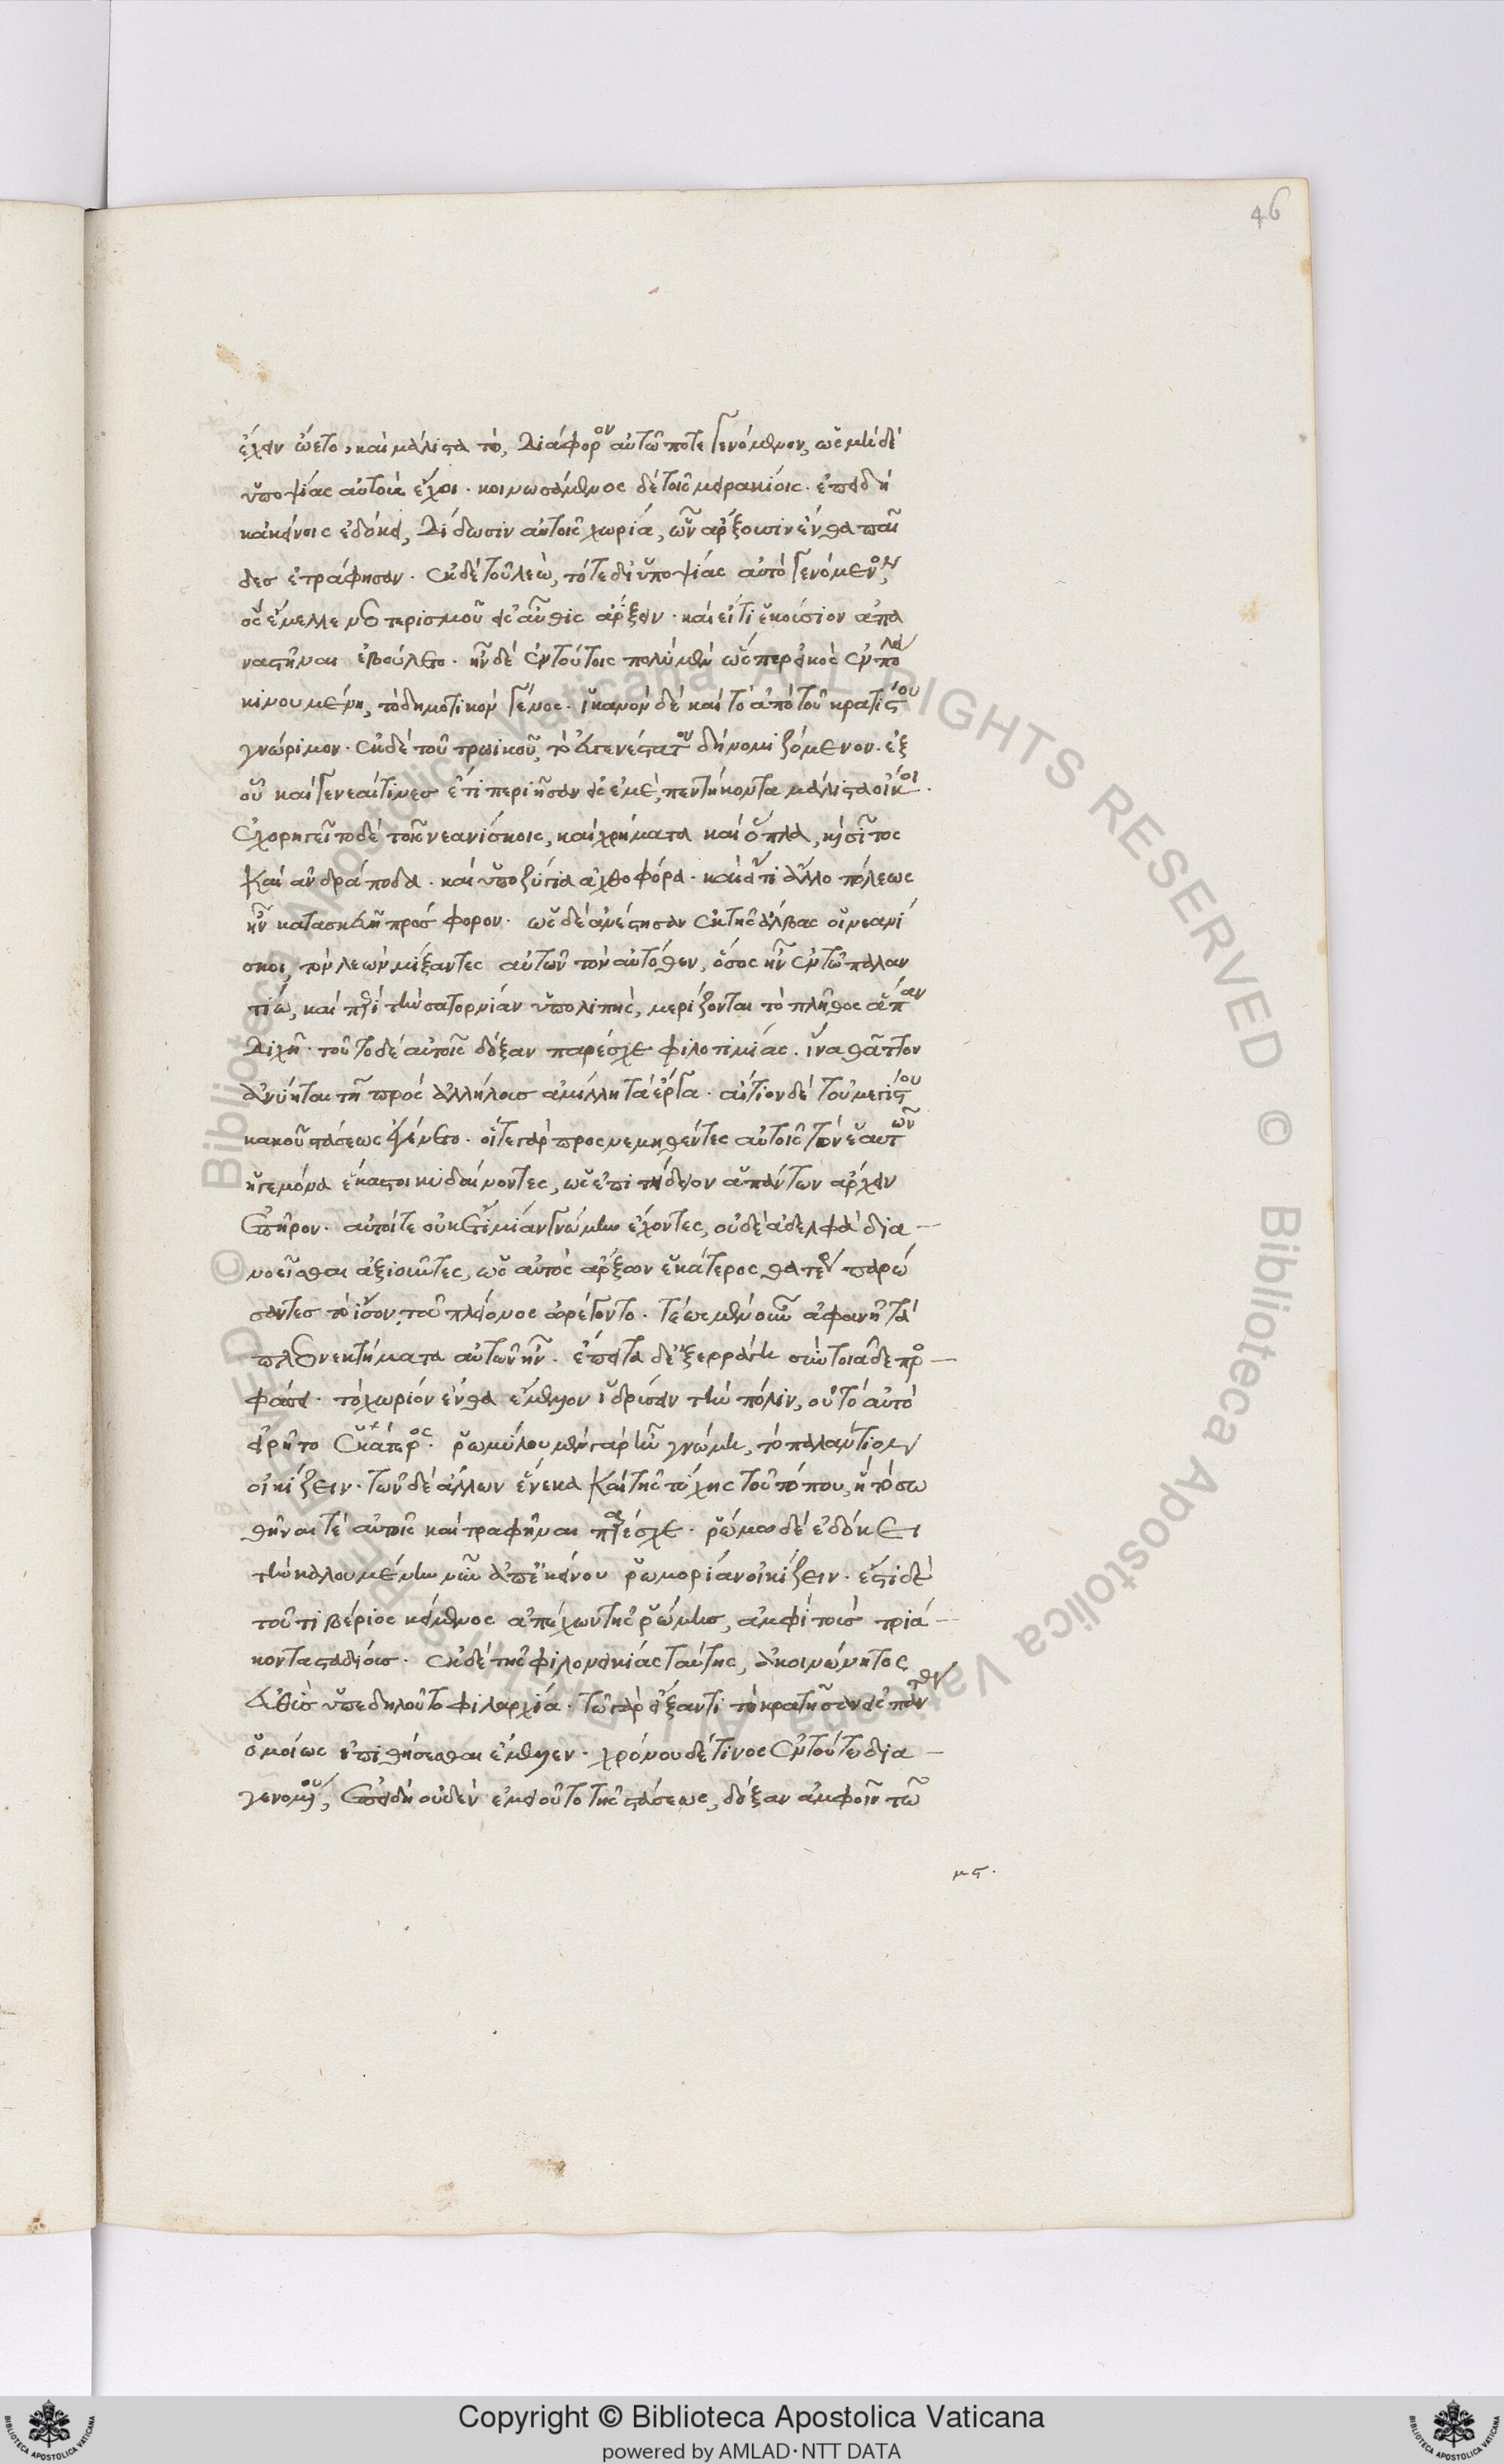 46
ἔχειν ᾤετο, καὶ μάλιστα τὸ, διάφορον αὐτῶ ποτε γενόμενον, ὡς μὴ δι'
ὑποψίας αὐτοὺς ἔχοι. κοινωσάμενος δὲ τοῖς μειρακίοις. ἐπειδὴ
κἀκείνοις ἐδόκει, δίδωσιν αὐτοῖς χωρία, ὧν ἄρξουσιν ἔνθα παῖ
δες ἐτράφησαν. ἐκ δὲ τοῦ λεὼ, τότε δι' ὑποψίας αὐτὸ γενόμενον,
ὃς ἔμελλε νεωτερισμοῦ εἰσαῦθις ἄρξειν. καὶ εἴ τι ἑκούσιον ἀπα
ναστῆναι ἐβούλετο. ἦν δὲ ἐν τούτοις πολὺ μὲν ὥσπερ εἰκὸς ἐν πόλει
κινουμένη, τὸ δημοτικὸν γένος. ἱκανὸν δὲ καὶ τὸ ἀπὸ τοῦ κρατίστου
γνώριμον. ἐκ δὲ τοῦ τρωικοῦ, τὸ εὐγενέστατον δὴ νομιζόμενον. ἐξ
οὗ καὶ γενεαί τινες ἔτι περιῆσαν εἰς ἐμὲ, πεντήκοντα μάλιστα οἶκοι.
ἐχορηγεῖτο δὲ τοῖς νεανίσκοις, καὶ χρήματα καὶ ὅπλα, καὶ σῖτος
καὶ ἀνδράποδα. καὶ ὑποζύγια ἀχθοφόρα. καὶ εἴ τι ἄλλο πόλεως
ἦν κατασκευῆ πρόσφορον. ὡς δὲ ἀνέστησαν ἐκ τῆς ἄλβας οἱ νεανί
σκοι, τὸν λεὼν μίξαντες αὐτῶν τὸν αὐτόθεν, ὅσος ἦν ἐν τῶ παλαν
τίω, καὶ περὶ τὴν σατορνίαν ὑπολιπὴς, μερίζονται τὸ πλῆθος ἅπαν
διχῆ. τοῦτο δὲ αὐτοῖς δόξαν παρέσχε φιλοτιμίας. ἵνα θᾶττον
ἀνύηται τῆ πρὸς ἀλλήλους ἁμίλλη τὰ ἔργα. αἴτιον δὲ τοῦ μεγίστου
κακοῦ στάσεως ἐγένετο. οἵ τε γὰρ προσνεμηθέντες αὐτοῖς τὸν ἑαυτῶν
ἡγεμόνα ἕκαστοι κυδαίνοντες, ὡς ἐπιτήδειον ἁπάντων ἄρχειν
ἐπῆρον. αὐτοί τε οὐκέτι μίαν γνώμην ἔχοντες, οὐδὲ ἀδελφὰ δια
νοεῖσθαι ἀξιοῦντες, ὡς αὐτὸς ἄρξων ἑκάτερος θατέρου παρώ
σαντες τὸ ἴσον, τοῦ πλείονος ὠρέγοντο. τέως μὲν οὖν ἀφανῆ τὰ
πλεονεκτήματα αὐτῶν ἦν. ἔπειτα δὲ ἐξερράγη σὺν τοιᾶδε προ
φάσει. τὸ χωρίον ἔνθα ἔμελλον ἱδρύσειν τὴν πόλιν, οὐ τὸ αὐτὸ
ἡρεῖτο ἑκάτερος. ῥωμύλου μὲν γὰρ ἦν γνώμη, τὸ παλάντιον
οἰκίζειν. τῶν δὲ ἄλλων ἕνεκα καὶ τῆς τύχης τοῦ τόπου, ἣ τὸ σω
θῆναί τε αὐτοῖς καὶ τραφῆναι παρέσχε. ῥώμω δὲ ἐδόκει
τὴν καλουμένην νῦν ἀπ' ἐκείνου ῥωμορίαν οἰκίζειν. ἔστι δὲ
τοῦ τιβέριος κείμενος ἀπέχων τῆς ῥώμης, ἀμφὶ τοὺς τριά
κοντα σταδίους. ἐκ δὲ τῆς φιλονεικίας ταύτης, ἀκοινώνητος
εὐθὺς ὑπεδηλοῦτο φιλαρχία. τῶ γὰρ εἴξαντι τὸ κρατῆσαν εἰς πάντα
ὁμοίως ἐπιθήσεσθαι ἔμελλεν. χρόνου δέ τινος ἐν τούτω δια
γενομένου, ἐπειδὴ οὐδὲν ἐμειοῦτο τῆς στάσεως, δόξαν ἀμφοῖν τῶ
μς.
Copyright © Biblioteca Apostolica Vaticana
powered by AMLAD·NTT DATA